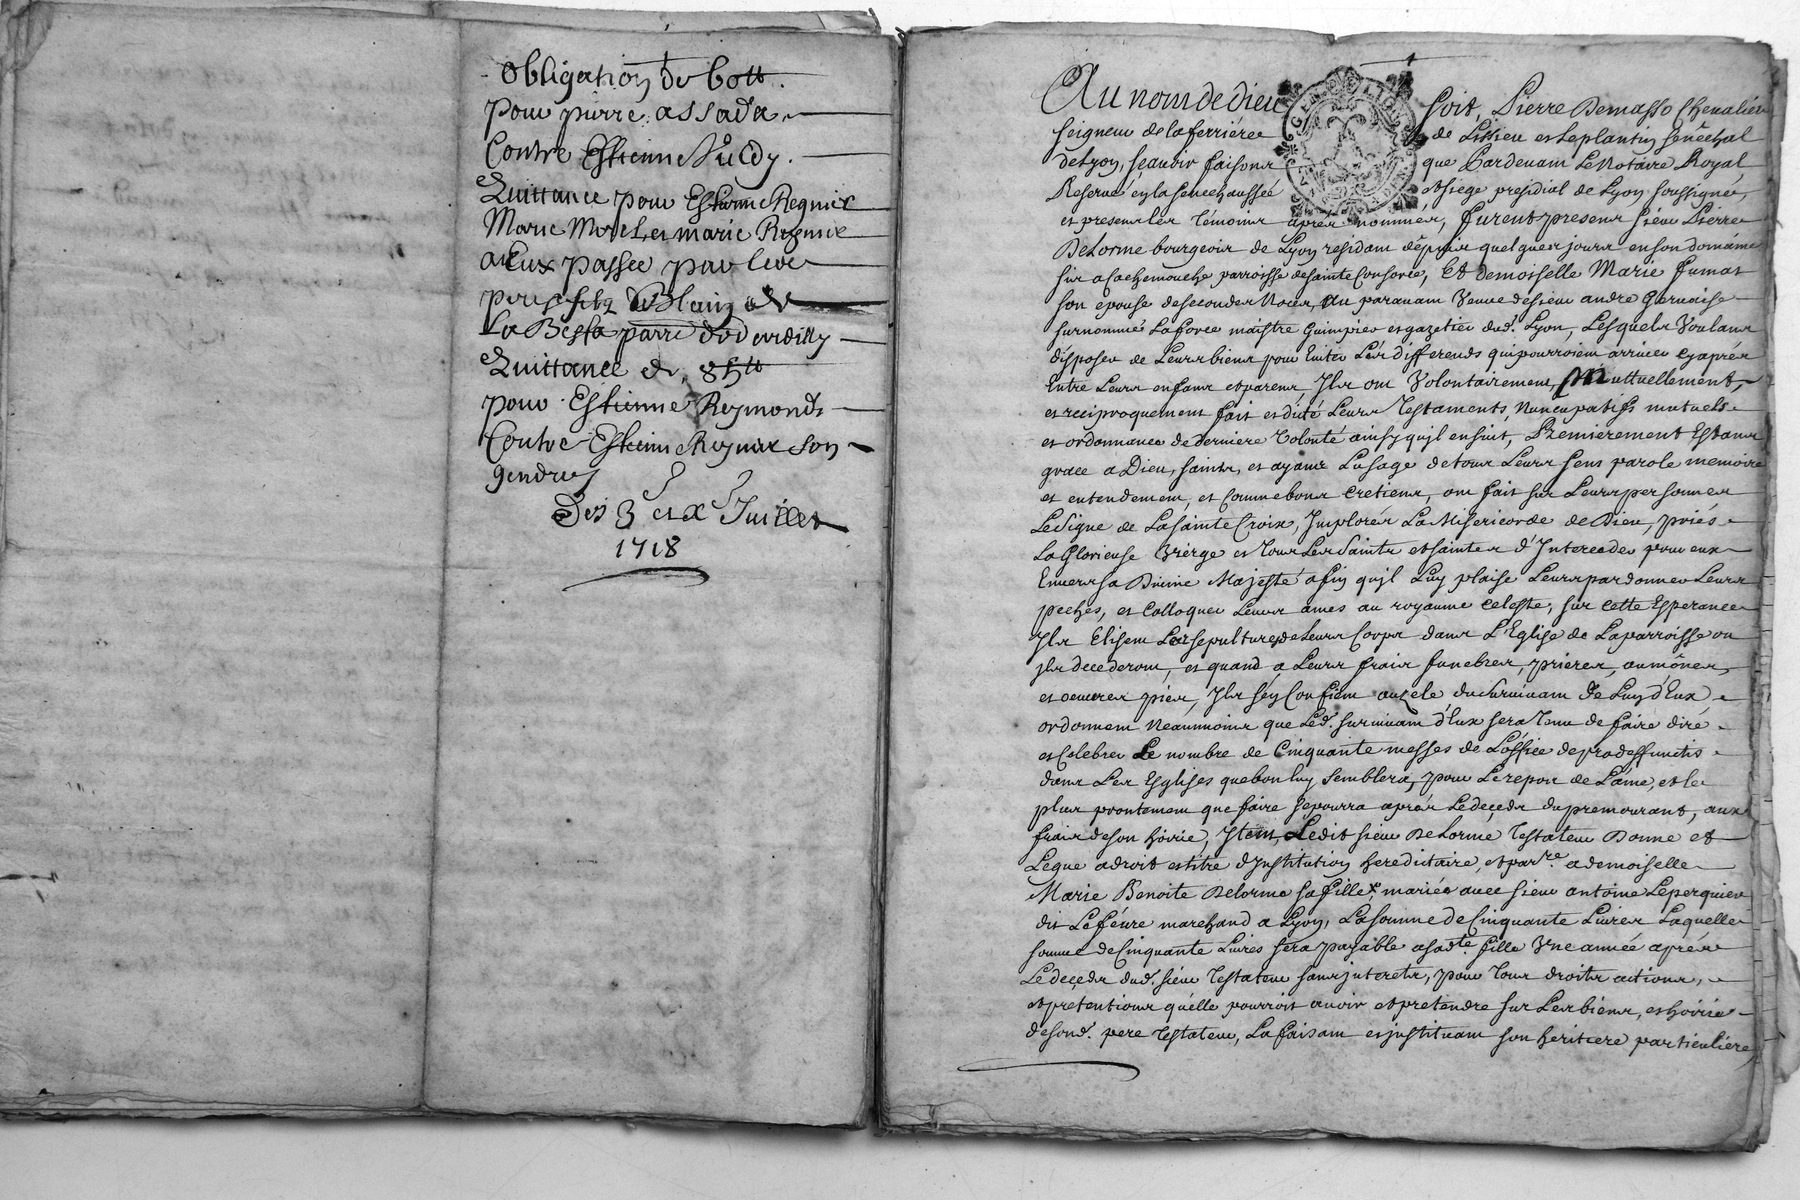 Obligation de 60tt.
pour pierre assada
Contre Estienne
Quittance pour Estienne Regnier
Marie Morel, et marie Regnier
a Eux passée par leur
pere et filz
La Besta parre dedardilly
Quittance de 85tt
pour Estienne Reymond
Contre Estienne Regnier son
gendre
Des 3 et x Juillet
1718
Au nom de dieu soit, Pierre Demasso Chevalier
seigneur de la ferriere de Lissieu et le plantin senéchal
de Lyon, scavoir faisons que Pardevant Le Notaire Royal
Reservé en la senechaussée et siege presidial de Lyon soussigné,
et presens les témoins apres nommés, furent presens sieur Pierre
Delorme bourgeois de Lyon residant dépuis quelques jours en son domaine
sis a Lachemouche parroisse de sainte Consorce, Et demoiselle Marie fumat
son epouse de secondes Noces, au paravant Veuve de sieur andre Gervaise
surnommé Laforce maistre Guimpier et gazetier dud. Lyon, Lesquels Voulans
disposer de Leurs biens pour Eviter Les differends qui pourroient arriver cy aprés
Entre Leurs enfans et parens Ils ont Volontairement, Muttuellement,
et reciproquement fait et dité Leurs Testaments, Nuncupatifs mutuels
et ordonnance de derniere Volonté ainsy quil ensuit, Premierement Estans
grace a Dieu, sains, et ayans Lusage de tous Leurs sens parole memoire
et entendement, et Comme bons Cretiens, ont fait sur Leurs personnes
Le signe de La sainte Croix, Implorés La Misericorde de Dieu, priés
La Glorieuse Vierge et Tous Les Saints et saintes d'Interceder pour eux
Envers sa Divine Majesté afin quil Luy plaise Leurs pardonner Leurs
peches, et Colloquer Leurs ames au royaume celeste, sur cette Esperance
Ils Elisent Les sepultures de Leurs Corps dans L'Eglise de La parroisse ou
Ils decederont, et quand a Leurs frais funebres, prieres, aumônes,
et oeuvres pies, Ils sen Confient au zele du Survivant de Luy d'Eux
ordonnent Neanmoins que Led. survivant d'Eux sera Tenu de faire dire
et Celebrer Le nombre de Cinquante messes de Loffice de pro deffunctis
dans Les Esglises que bon luy semblera, pour Le repos de L'ame, et le
plus prontement que faire se pourra aprés Le deceds du premourant, aux
frais de son hoirie, Item, Ledit sieur Delorme Testateur Donne et
Legue a droit et titre d'Institution hereditaire, et par re a demoiselle
Marie Benoite Delorme sa fille mariée avec sieur antoine Leperquier
dit Lefévre marchand a Lyon, La somme de Cinquante Livres Laquelle
somme de Cinquante Livres sera payable a sadte. fille Vne année aprés
Le deceds dud. sieur Testateur sans interets, pour Tous droits actions,
et pretentions qu'elle pourroit avoir et pretendre sur Les biens, et hoirie
de sond. pere Testateur, La faisant et instituant son heritiere particuliere